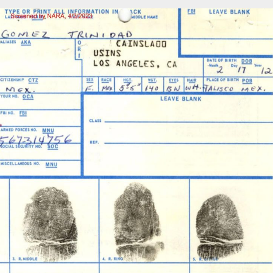 TYPE OR PRINT ALL INFORMATION IN BLACK
LAST NAME NAM
MIDDLE NAME
FBI
LEAVE BLANK
GOMEZ TRINIDAD
ALIASES AKA
O
R
I
CAINSLA00
USINS
LOS ANGELES, CA
DATE OF BIRTH DOB
Month Day Year
2 17 12
CITIZENSHIP CTZ
MEX.
SEX
RACE
HGT.
WGT.
EYES
HAIR
PLACE OF BIRTH POB
140 BN
JALISCO MEX.
YOUR NO. OCA
LEAVE BLANK
FBI NO. FBI
CLASS
ARMED FORCES NO. MNU
567314756
SOCIAL SECURITY NO. SOC
REF.
MISCELLANEOUS NO. MNU
3. R. MIDDLE
4. R. RING